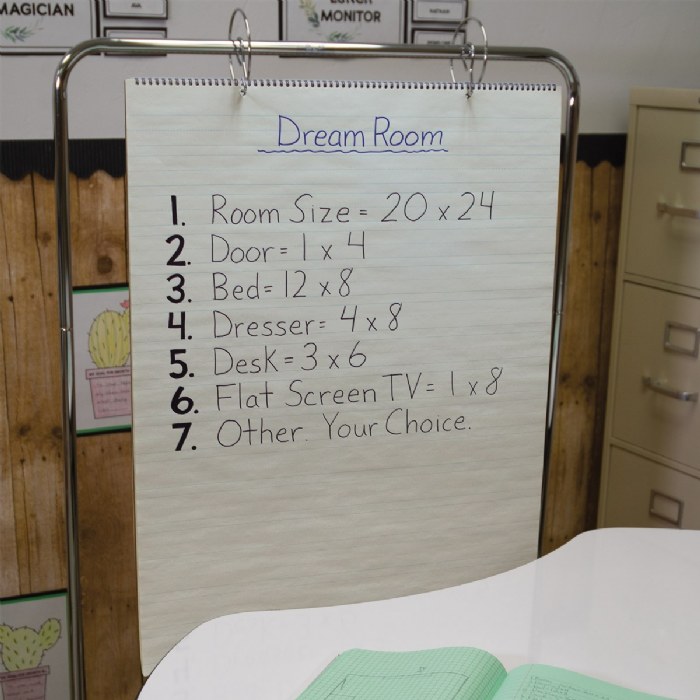 MAGICIAN
MONITOR
Dream Room
1. Room Size = 20 x 24
2. Door = 1 x 4
3. Bed = 12 x 8
4. Dresser = 4 x 8
5. Desk = 3 x 6
6. Flat Screen TV = 1 x 8
7. Other. Your Choice.